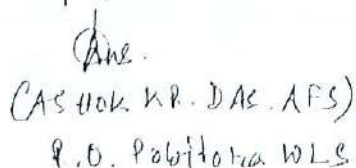 (ASHOK KR. DAS. AFS)
R.O. Pobitora WLS